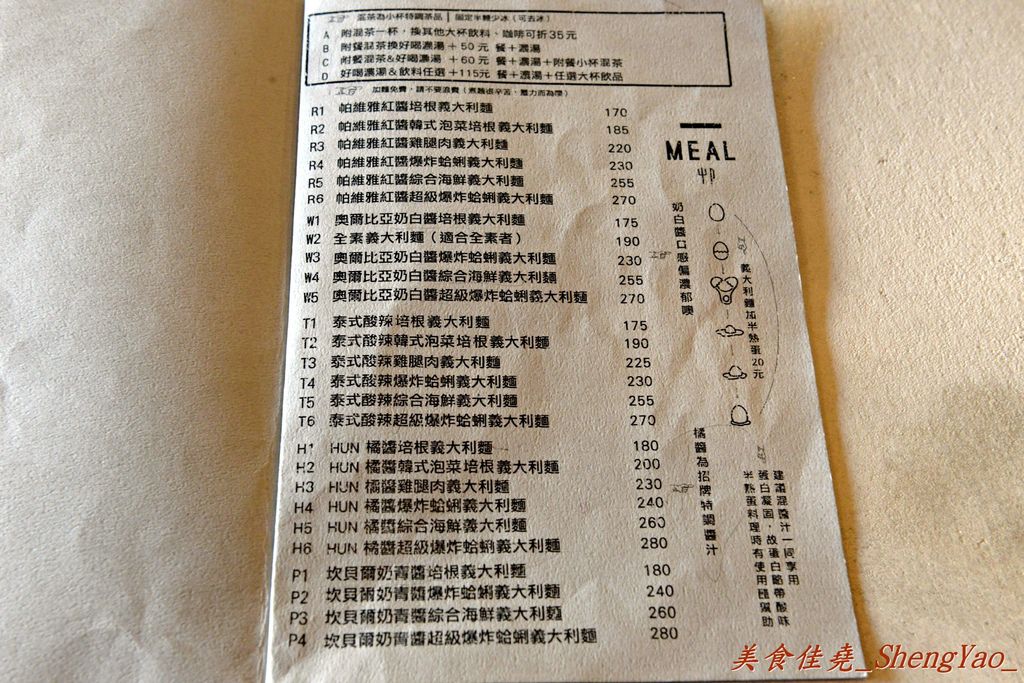 混茶為小杯特調茶品｜固定半糖少冰（可去冰）
A 附混茶一杯，換其他大杯飲料、咖啡可折35元
B 附餐混茶換好喝濃湯＋50元 餐＋濃湯
C 附餐混茶&好喝濃湯 ＋60元 餐＋濃湯＋附餐小杯混茶
D 好喝濃湯&飲料任選＋115元 餐＋濃湯＋任選大杯飲品
加麵免費，請不要浪費（煮麵很辛苦、量力而為喔）
R1 帕維雅紅醬培根義大利麵 170
R2 帕維雅紅醬韓式泡菜培根義大利麵 185
R3 帕維雅紅醬雞腿肉義大利麵 220
R4 帕維雅紅醬爆炸蛤蜊義大利麵 230
R5 帕維雅紅醬綜合海鮮義大利麵 255
R6 帕維雅紅醬超級爆炸蛤蜊義大利麵 270
W1 奧爾比亞奶白醬培根義大利麵 175
W2 全素義大利麵（適合全素者） 190
W3 奧爾比亞奶白醬爆炸蛤蜊義大利麵 230
W4 奧爾比亞奶白醬綜合海鮮義大利麵 255
W5 奧爾比亞奶白醬超級爆炸蛤蜊義大利麵 270
T1 泰式酸辣培根義大利麵 175
T2 泰式酸辣韓式泡菜培根義大利麵 190
T3 泰式酸辣雞腿肉義大利麵 225
T4 泰式酸辣爆炸蛤蜊義大利麵 230
T5 泰式酸辣綜合海鮮義大利麵 255
T6 泰式酸辣超級爆炸蛤蜊義大利麵 270
H1 HUN 橘醬培根義大利麵 180
H2 HUN 橘醬韓式泡菜培根義大利麵 200
H3 HUN 橘醬雞腿肉義大利麵 230
H4 HUN 橘醬爆炸蛤蜊義大利麵 240
H5 HUN 橘醬綜合海鮮義大利麵 260
H6 HUN 橘醬超級爆炸蛤蜊義大利麵 280
P1 坎貝爾奶青醬培根義大利麵 180
P2 坎貝爾奶青醬爆炸蛤蜊義大利麵 240
P3 坎貝爾奶青醬綜合海鮮義大利麵 260
P4 坎貝爾奶青醬超級爆炸蛤蜊義大利麵 280
MEAL
奶白醬口感偏濃郁噢
義大利麵加半熟蛋20元
橘醬為招牌特調醬汁
建議混醬汁一同享用
蛋白凝固，故蛋白略帶酸味
半熟蛋料理時有使用醋幫助
美食佳堯_ShengYao_